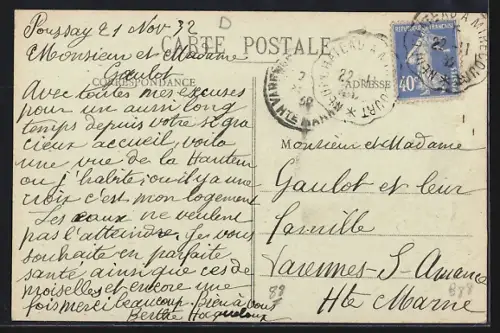 Poussay 21 Nov 32
D
CARTE POSTALE
Monsieur et Madame
Gaulot
CORRESPONDANCE
ADRESSE
Avec toutes mes excuses
pour un aussi long
temps depuis votre si gra
cieux accueil, voila
une vue de la Hauteur
ou j'habite, ou il y a une
croix c'est mon logement
Les eaux ne veulent
pas l'atteindre. Je vous
souhaite en parfaite
santé ainsi que ces de
moiselles et encore une
fois merci beaucoup. Bien à vous
Berthe
40c
22 - 11
MIRECOURT
22 - 11
Monsieur et Madame
Gaulot et leur
famille
Varennes-S-Amance
Hte Marne
88
888